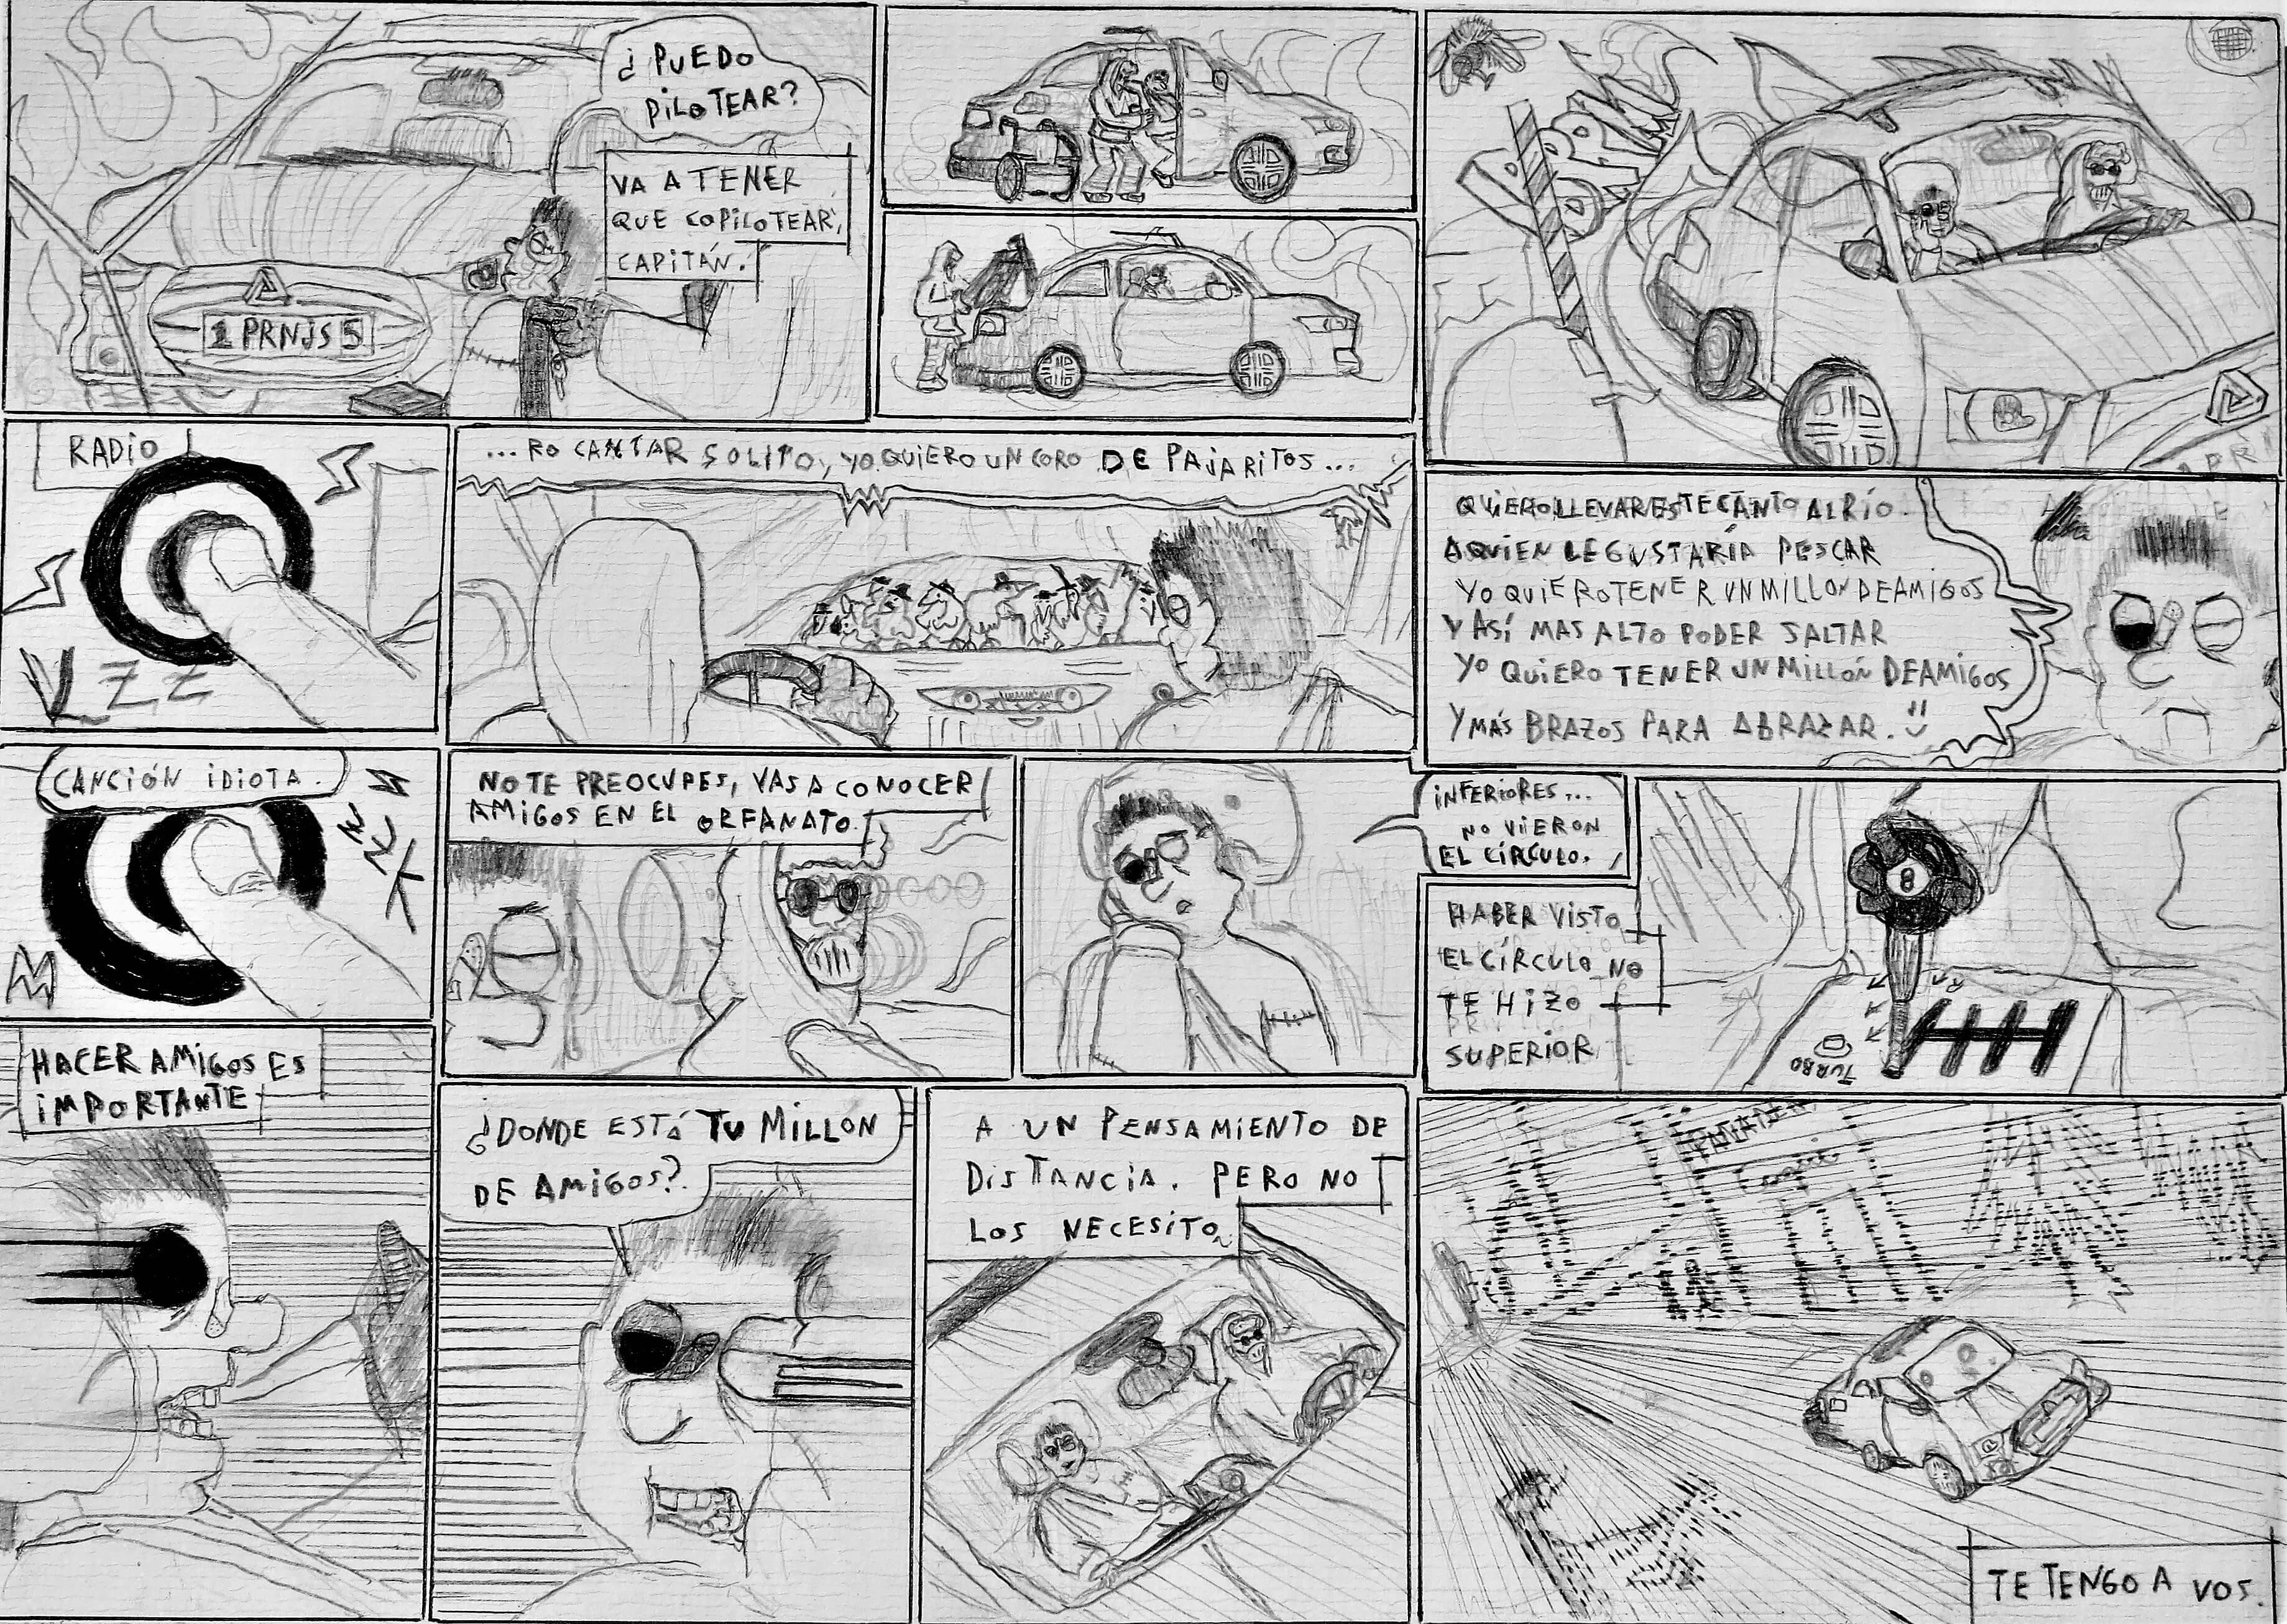 ¿PUEDO
PILOTEAR?
VA A TENER
QUE COPILOTEAR,
CAPITÁN.
1 PRNJS 5
RADIO
...RO CANTAR SOLITO, YO QUIERO UN CORO DE PAJARITOS...
QUIERO LLEVAR ESTE CANTO AL RÍO.
A QUIEN LE GUSTARÍA PESCAR
YO QUIERO TENER UN MILLON DE AMIGOS
Y ASÍ MAS ALTO PODER SALTAR
YO QUIERO TENER UN MILLÓN DE AMIGOS
Y MÁS BRAZOS PARA ABRAZAR.
CANCIÓN IDIOTA.
NO TE PREOCUPES, VAS A CONOCER
AMIGOS EN EL ORFANATO.
INFERIORES...
NO VIERON
EL CÍRCULO.
HABER VISTO
EL CÍRCULO NO
TE HIZO
SUPERIOR
8
TURBO
HACER AMIGOS ES
IMPORTANTE
¿DONDE ESTÁ TU MILLON
DE AMIGOS?
A UN PENSAMIENTO DE
DISTANCIA. PERO NO
LOS NECESITO
TE TENGO A VOS.